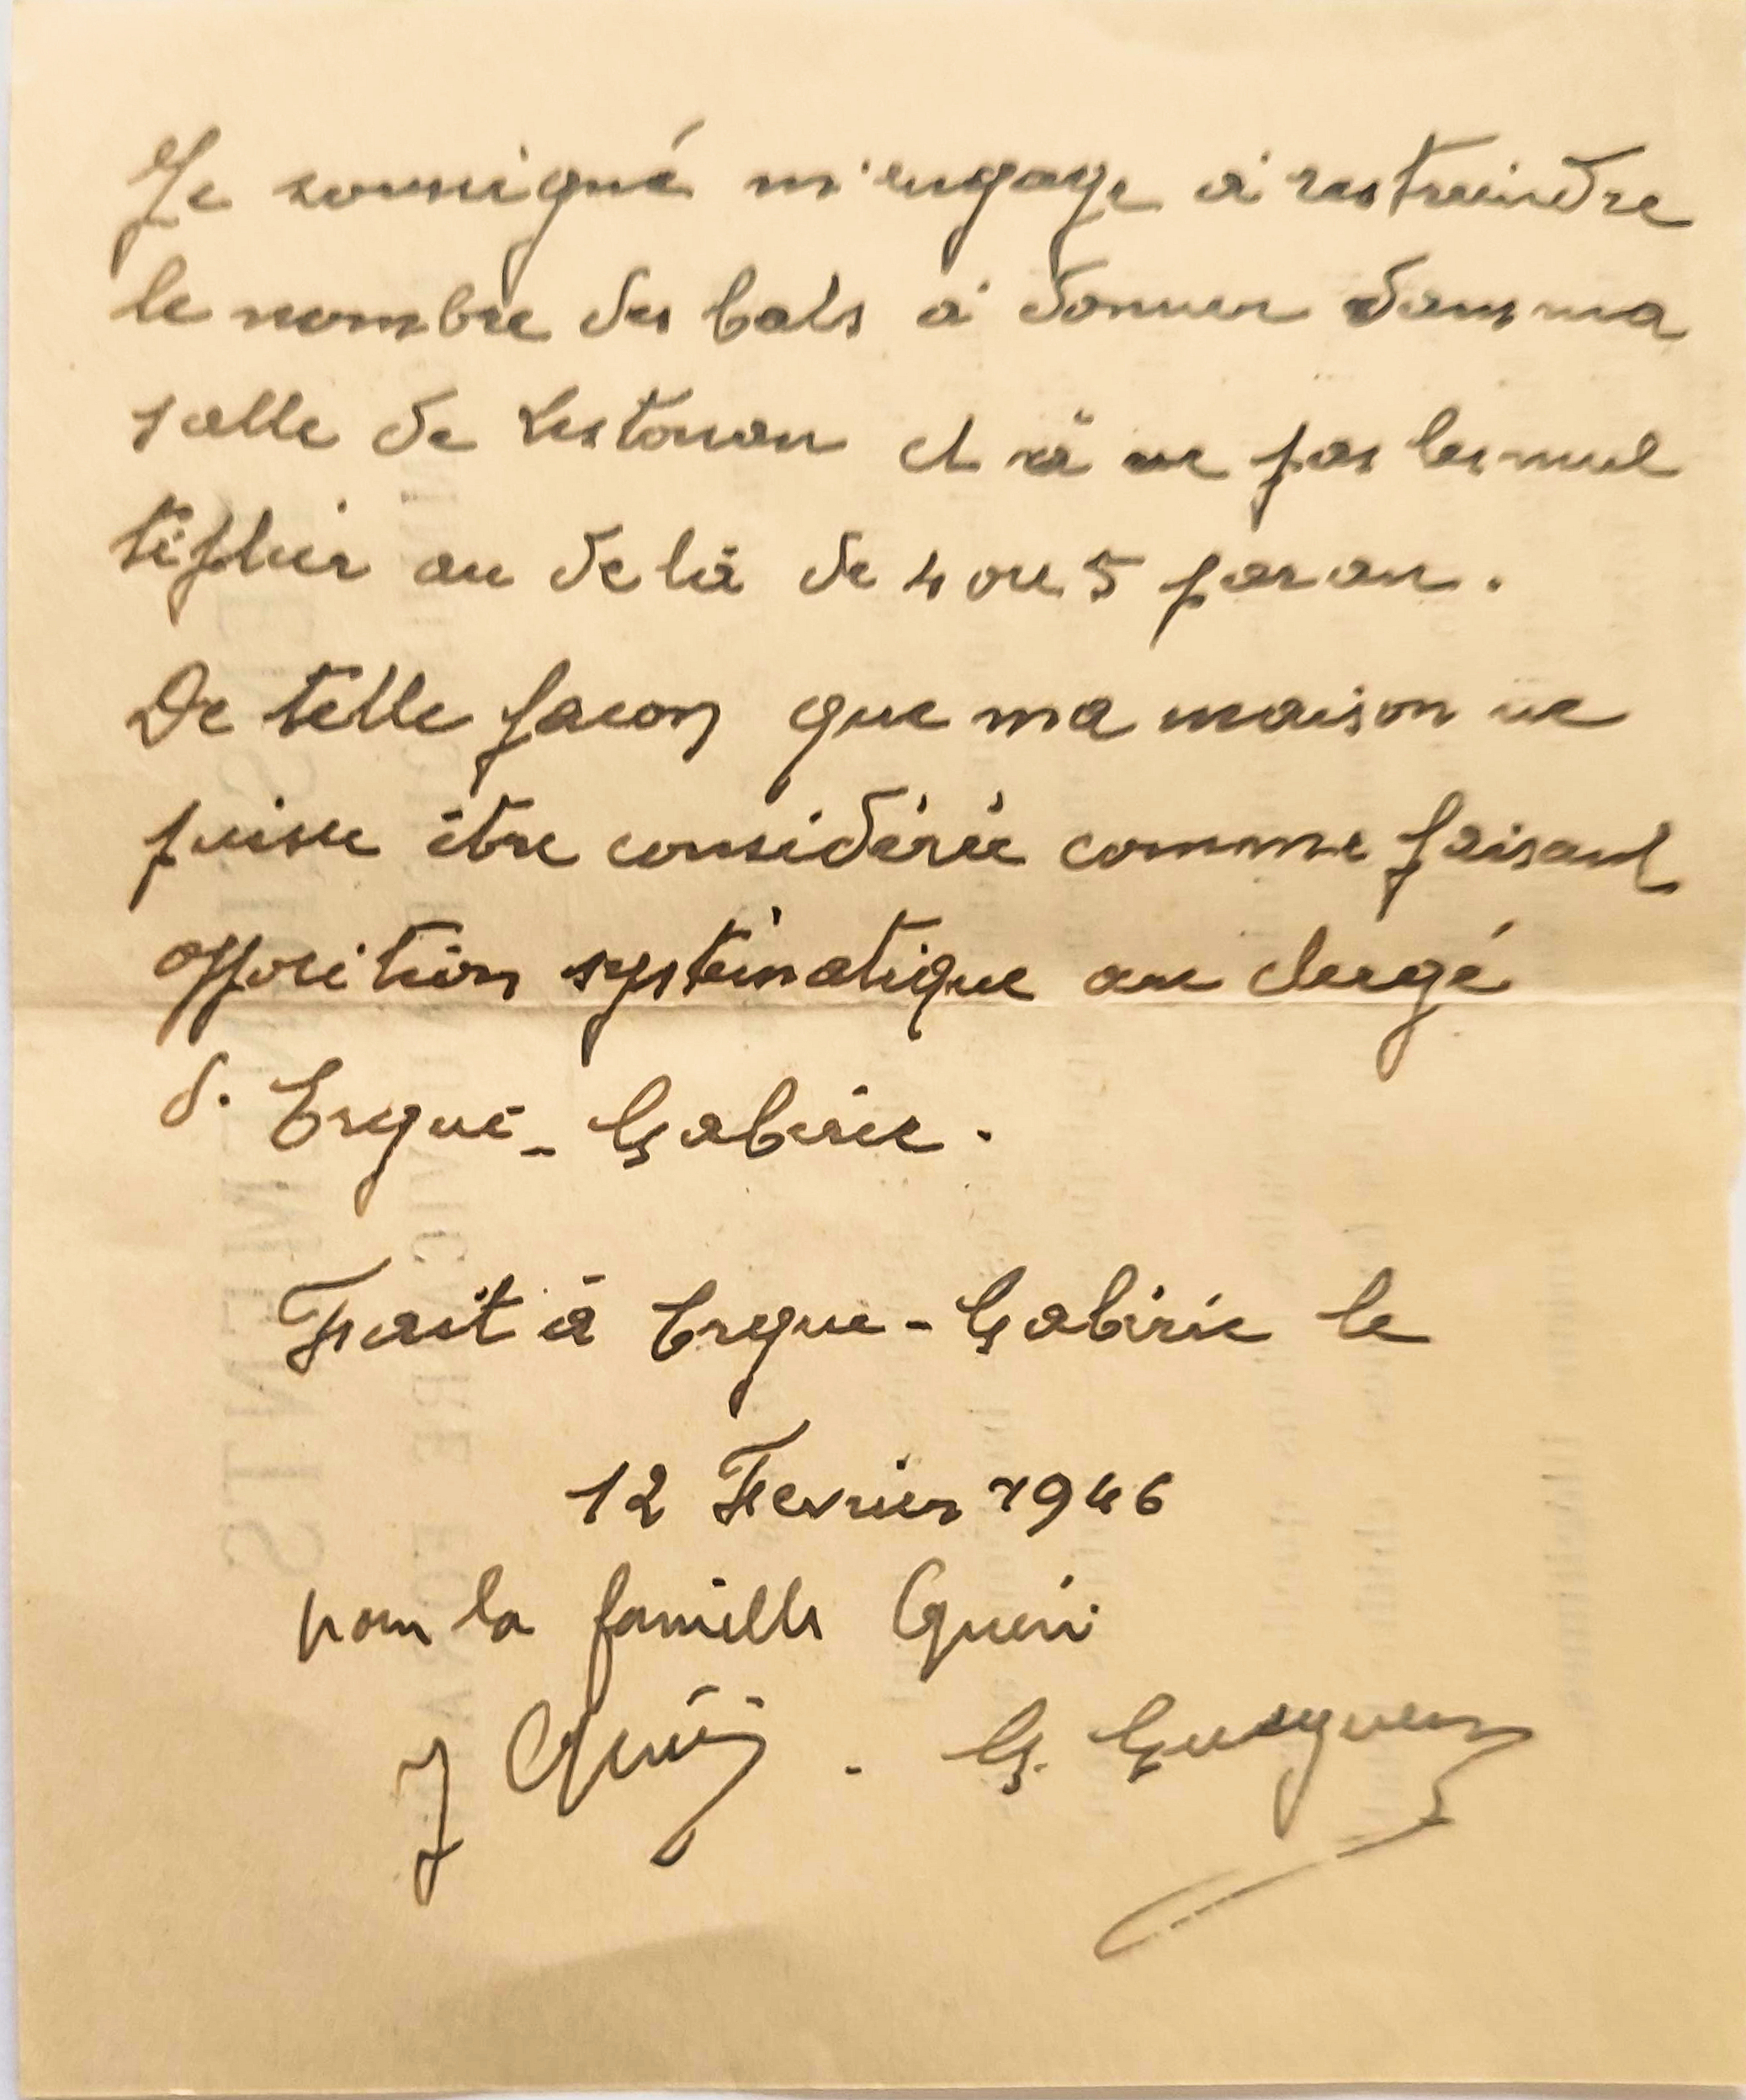 Je soussigné m'engage à restreindre
le nombre des bals à donner dans ma
salle de Lestonan et à ne pas les mul
tiplier au delà de 4 ou 5 par an.
De telle facon que ma maison ne
puisse être considérée comme faisant
opposition systématique au clergé
d. Ergué-Gabéric.
Fait à Ergue-Gabéric le
12 Fevrier 1946
pour la famille Quéré
J Quéré . G.